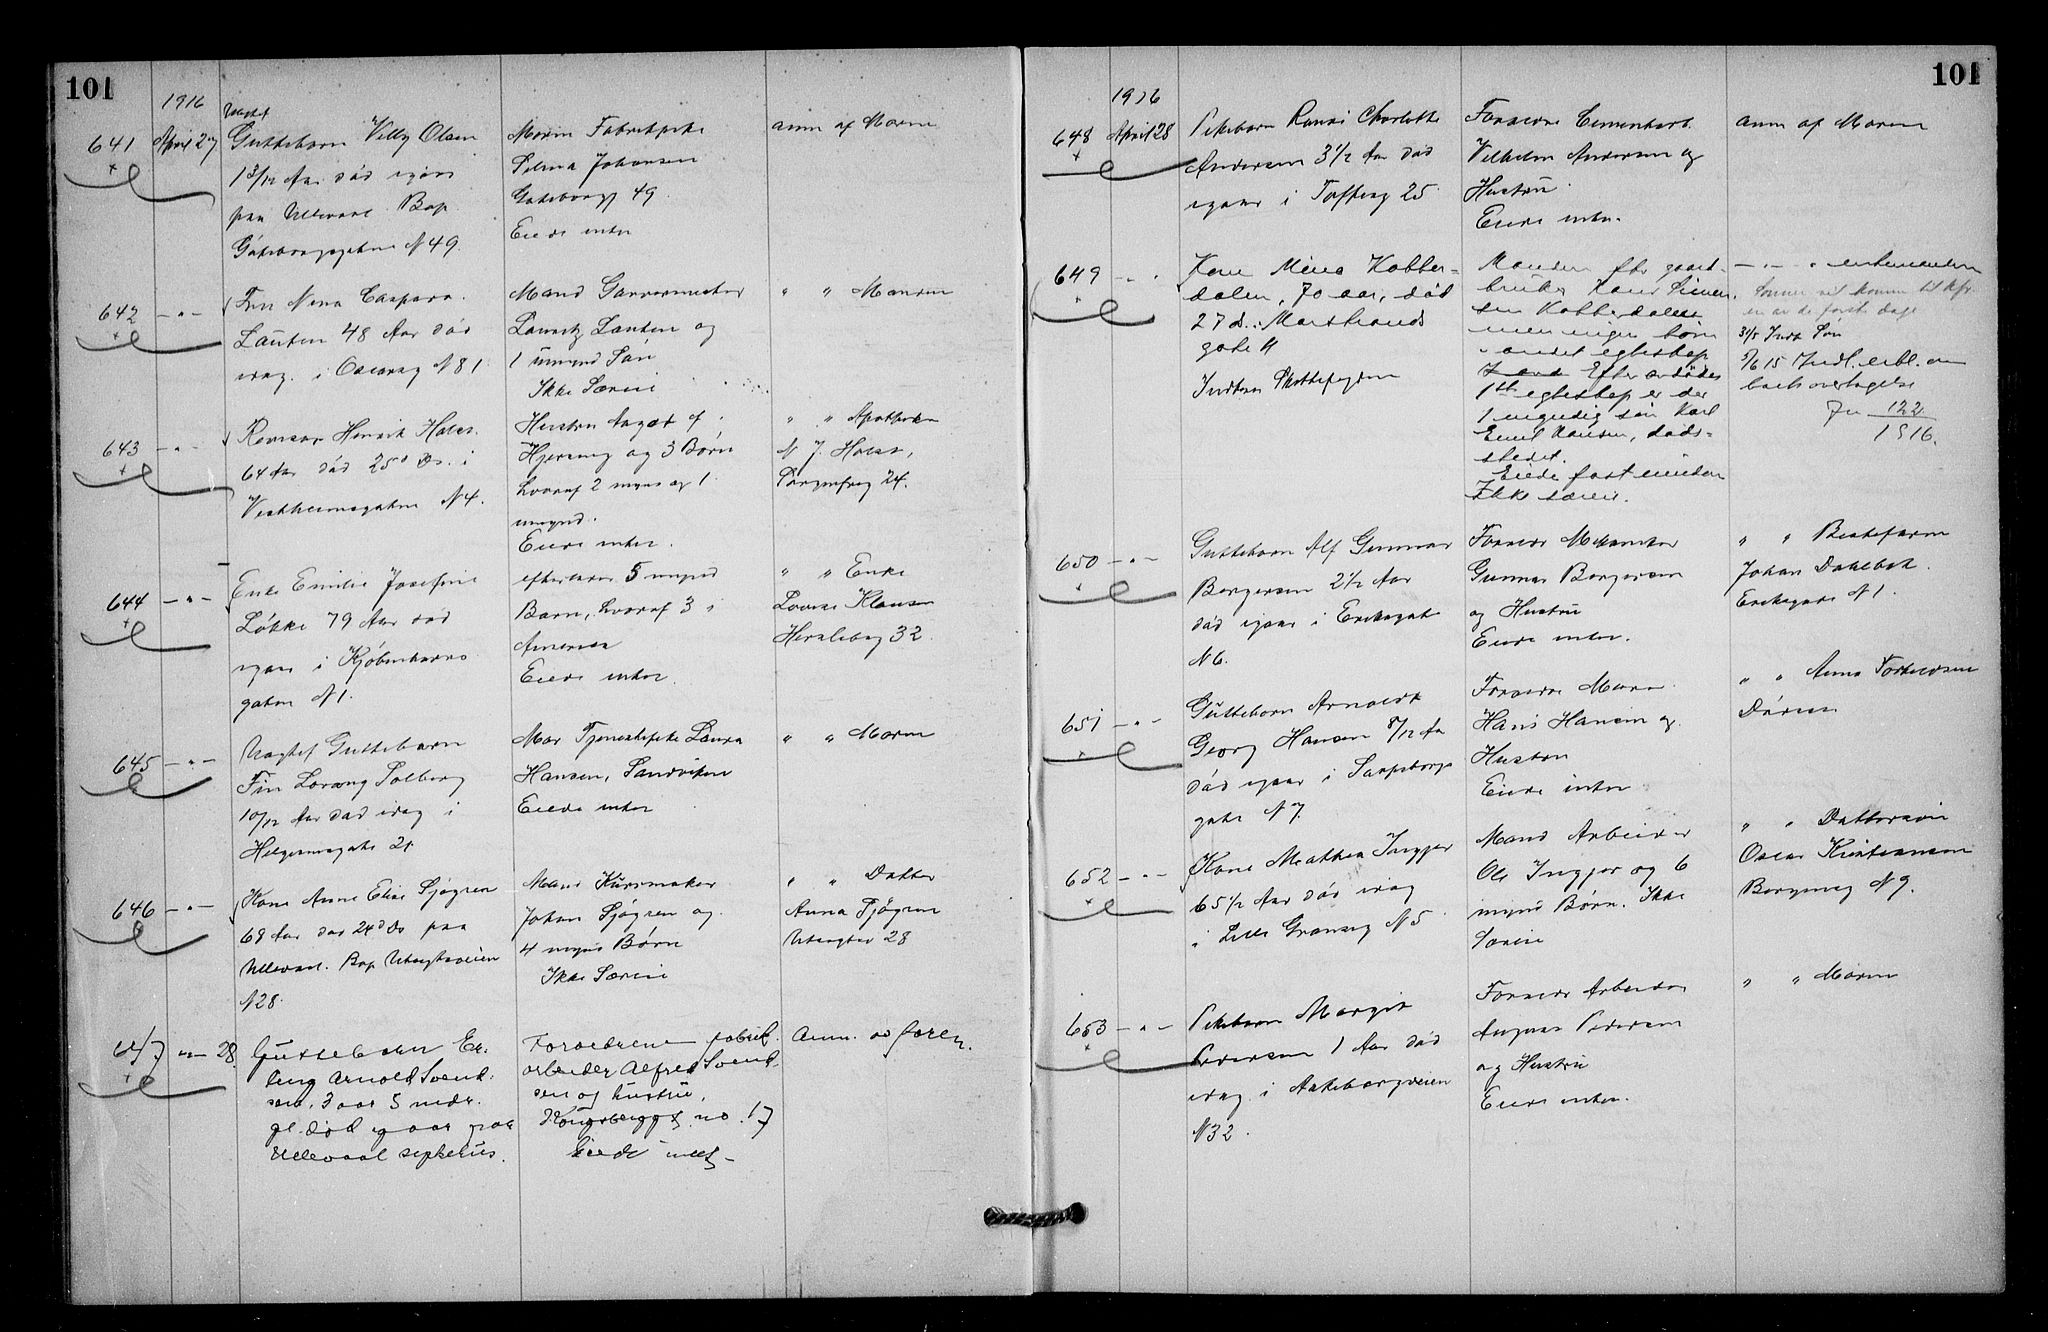 101
1916
641 April 27 Uægte Guttebarn Villy Olsen
1 3/12 Aar død igaar
paa Ullevaal. Bop.
Göteborggaten N 49.
Moren Fabrikpike
Selma Johansen
Göteborgg 49.
Eiede intet
anm af Moren
642 — " — Fru Nina Caspara
Lauten 48 Aar død
idag i N 81
Mand Garvermester
Lauritz Lauten og
1 umynd Søn
Ikke Særeie
" " Manden
643 — " — Revisor Henrik Holst
64 Aar død 25d Ds. i
Vestheimsgaten N 4.
Hustru Aagot f.
og 3 Børn
hvoraf 2 mynd og 1
umynd.
Eiede intet.
" " Apotheker
N J. Holst,
Sorgenfrig 24.
644 — " — Enke Emilie Josefine
Løkke 79 Aar død
igaar i Kjøbenhavns
gaten N 1.
efterlader 5 mynd
Børn, hvoraf 3 i
Amerika
Eiede intet.
" " Enke
Lovise Klausen
Herslebsg 32.
645 — " — Uægtef Guttebarn
Finn Lorang Solberg
10/12 Aar død idag i
Helgesensgate 21
Mor Tjenestepike Laura
Hansen, Sandviken
Eiede intet
" " Moren
646 — " — Kone Anne Elise Sjögren
69 Aar død 24d Ds paa
Ullevaal. Bop Uelandsveien
N 28.
Mand Kurvmaker
Johan Sjögren og
4 mynd Børn
Ikke Særeie
" " Datter
Anna Sjögren
28
647 — " — 28 Guttebarn Er-
ling Arnold Svend-
sen, 3 aar 5 mdr.
gl. død igaar paa
Ullevaal sykehus.
Forældrene fabrik-
arbeider Alfred Svend-
sen og hustru,
Kongsberggt. no. 17
Eiede intet
Anm. av faren.
101
1916
648 April 28 Pikebarn Randi Charlotte
Andersen 3 1/2 Aar død
igaar i Tofteg 25
Forældre Cementarb.
Vilhelm Andersen og
Hustru.
Eiede intet.
anm af Moren
649 — " — Kone Mina Kobber-
dalen, 70 aar, død
27 ds. Marstrands
gate 4
Manden fhv gaard-
bruker Hans Simen-
sen Kobberdalen
men ingen børn
i andet egteskap
Efter avdødes
1ste egteskap er der
1 myndig søn Karl
Emil Hansen, døds-
stedet.
Eiede fast eiendom
Ikke særeie.
— " — enkemanden
Sønnen vil komme til Skifr
en av de første dage
3/5 Indk Søn
5/6 15 Indl. erkl. om
boets overtagelse
Jn 122/1916.
650 — " — Guttebarn Alf Gunnar
Borgersen 2 1/2 Aar
død igaar i Eriksgate
N 6.
Forældre Mekaniker
Gunnar Borgersen
og Hustru
Eiede intet.
" " Bestefaren
Johan Dahlbek
Eriksgate N 1.
651 — " — Guttebarn Arnold
Georg Hansen 8/12 Aar
død igaar i Sarpsborg
gate N 7.
Forældre Murer
Hans Hansen og
Hustru
Eiede intet
" " Anna Torkildsen
652 — " — Kone Mathea Ingjer
65 1/2 Aar død idag
i Lille Grænseg N 5
Mand Arbeider
Ole Ingjer og 6
mynd Børn. Ikke
Særeie
" " Dattersøn
Oscar Kristiansen
Borgenveg N 9.
653 — " — Pikebarn Margit
Pedersen 1 Aar død
idag i Aakebergveien
N 32.
Forældre Arbeider
August Pedersen
og Hustru
Eiede intet.
" " Moren